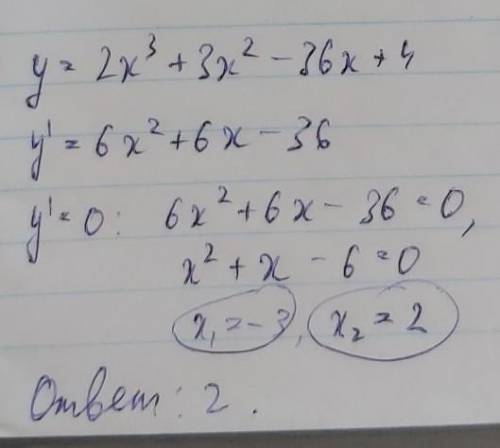 y = 2x³ + 3x² - 36x + 4
y' = 6x² + 6x - 36
y' = 0: 6x² + 6x - 36 = 0,
x² + x - 6 = 0
x₁ = -3, x₂ = 2
Ответ: 2.